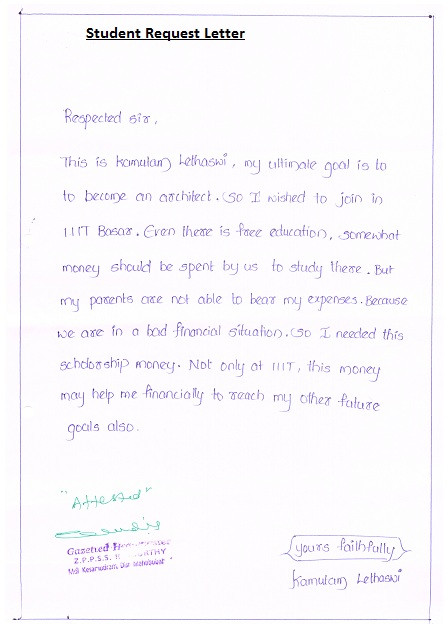 Student Request Letter
Respected sir,
This is Kamulam Lethaswi, my ultimate goal is to
to become an architect. So I wished to join in
IIIT Basar. Even there is free education, somewhat
money should be spent by us to study there. But
my parents are not able to bear my expenses. Because
we are in a bad financial situation. So I needed this
scholorship money. Not only at IIIT, this money
may help me financially to reach my other future
goals also.
"Attested"
Gazetted
Z.P.P.S.S.
yours faithfully
Kamulam Lethaswi